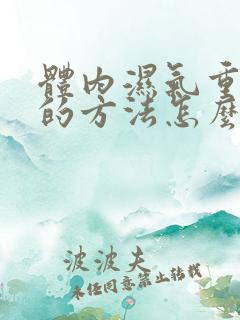 體內濕氣重
的方法怎麼
波波夫
未經同意禁止轉載